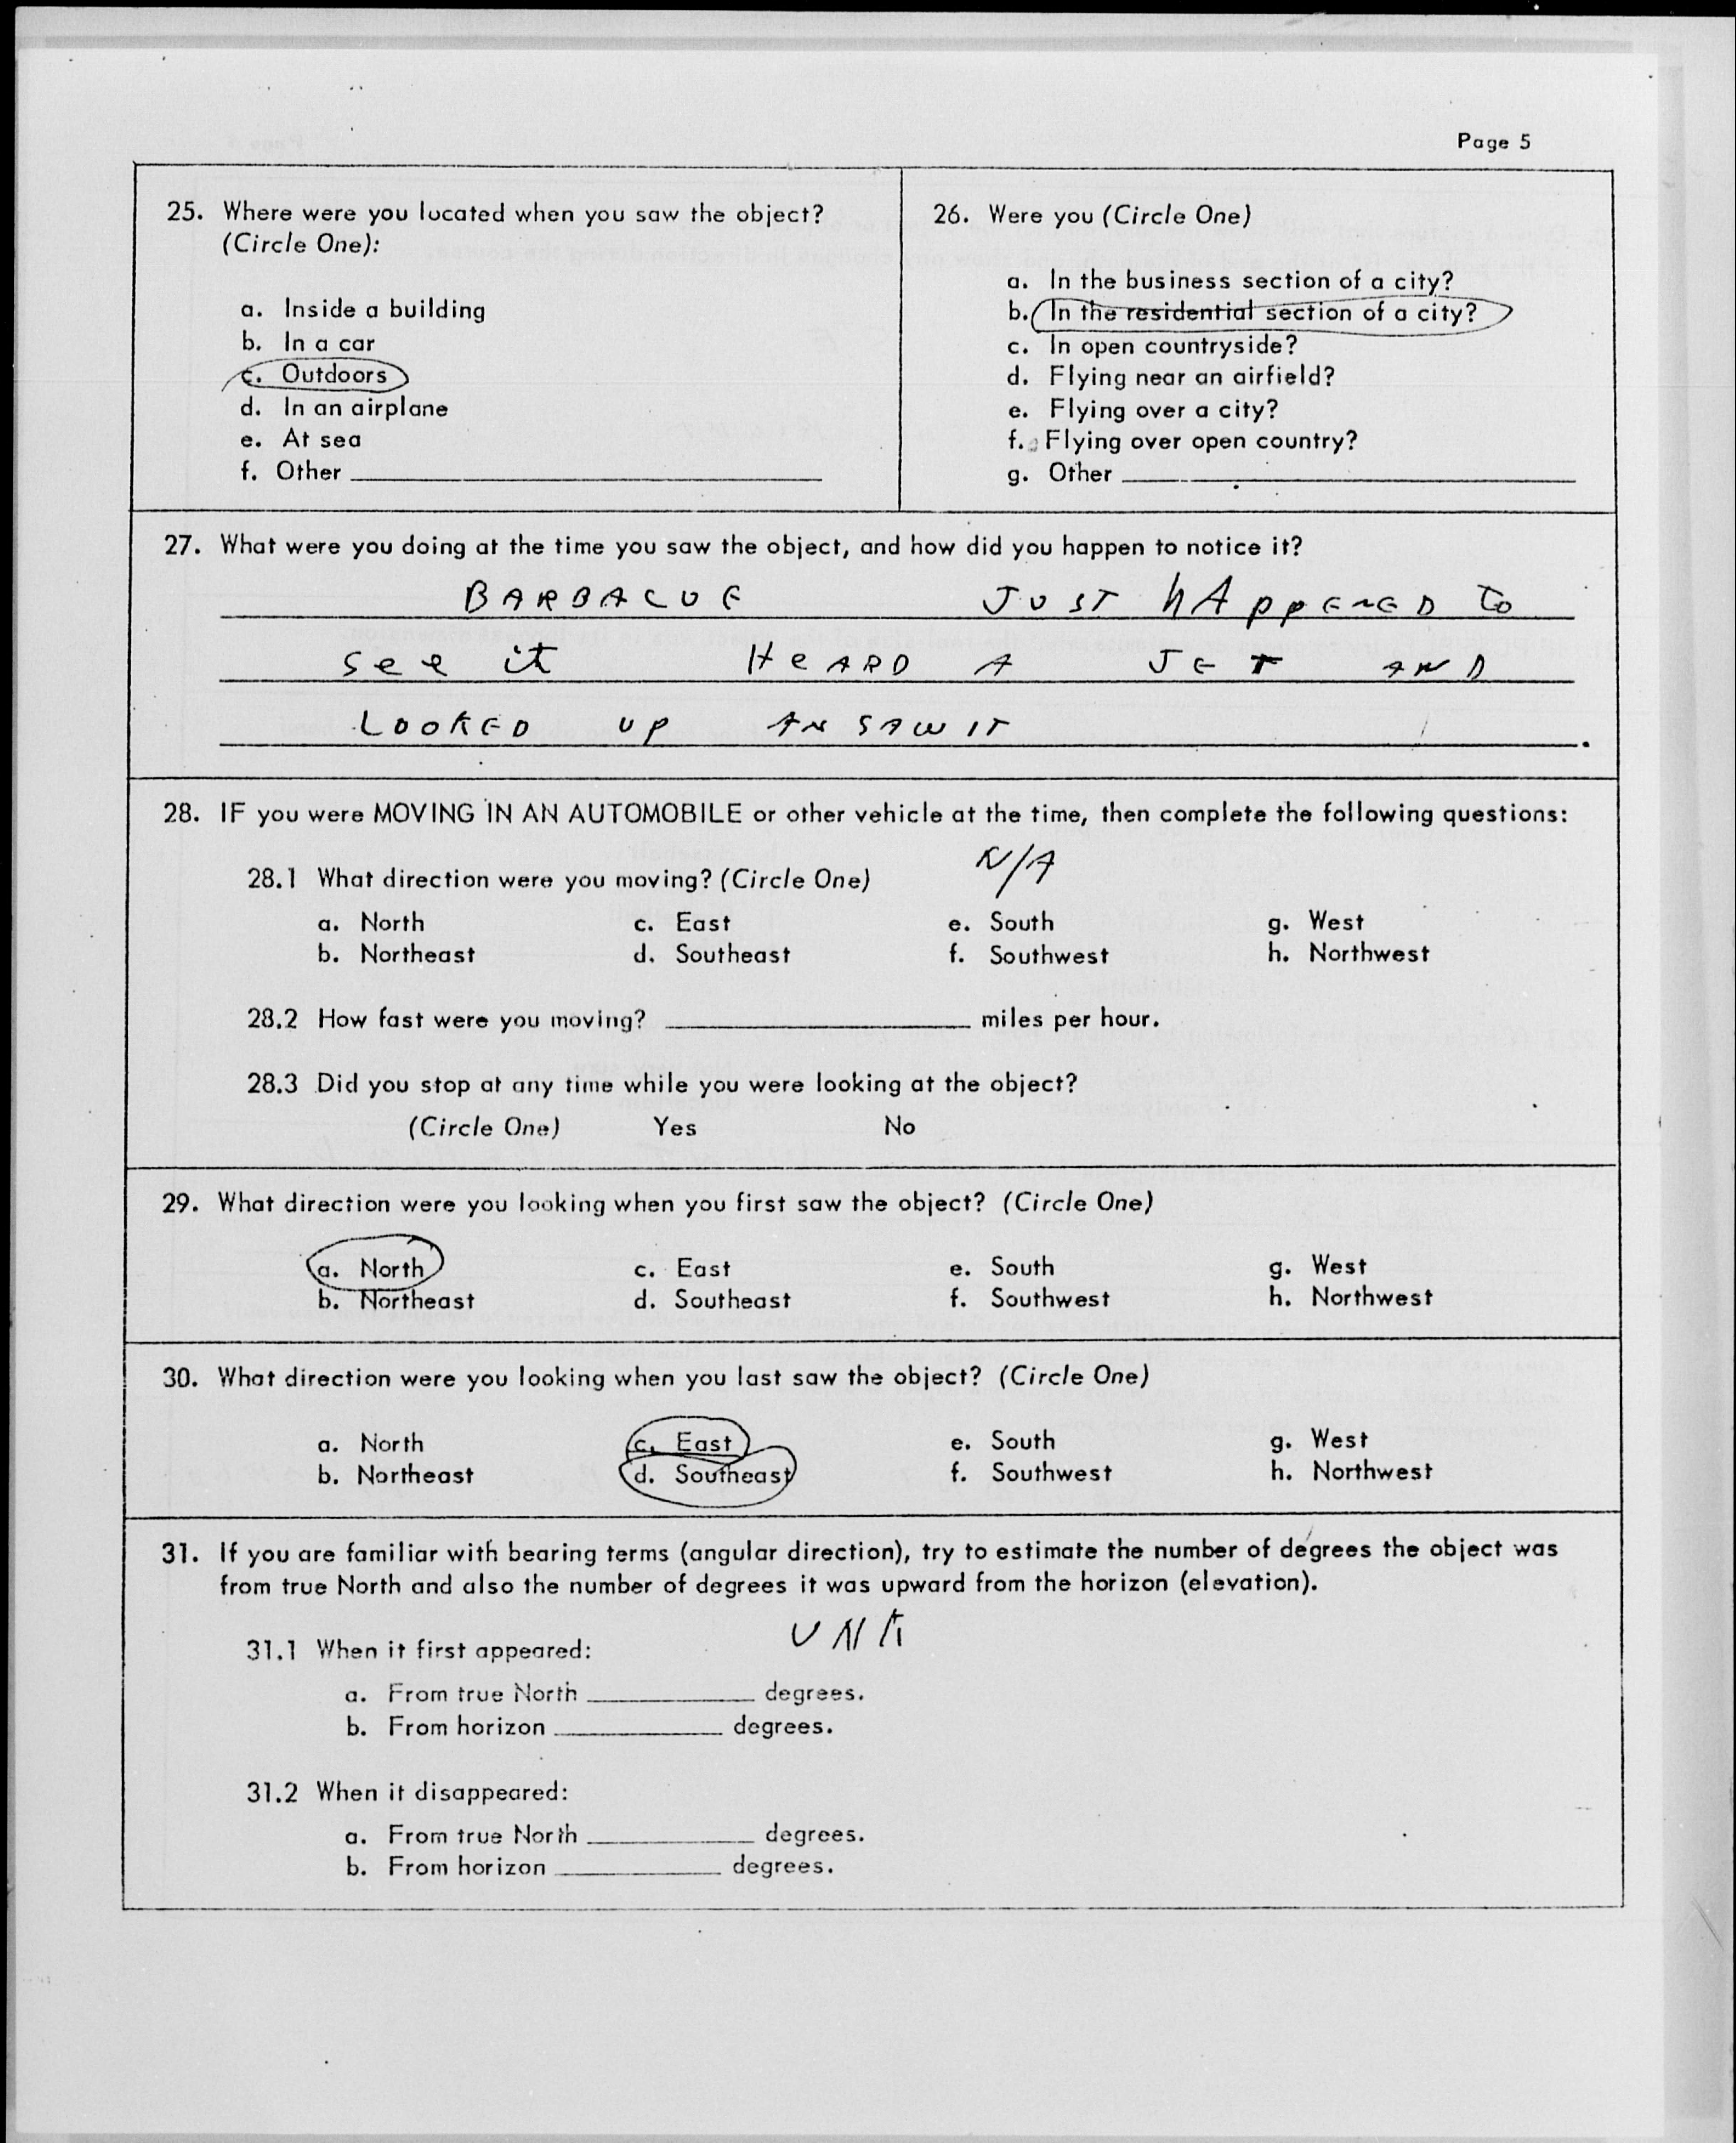 Page 5
25. Where were you located when you saw the object?
(Circle One):
a. Inside a building
b. In a car
c. Outdoors
d. In an airplane
e. At sea
f. Other
26. Were you (Circle One)
a. In the business section of a city?
b. In the residential section of a city?
c. In open countryside?
d. Flying near an airfield?
e. Flying over a city?
f. Flying over open country?
g. Other
27. What were you doing at the time you saw the object, and how did you happen to notice it?
BARBACUE JUST hAppENED To
see it HeARD A JET AND
LOOKED UP AN SAW IT
28. IF you were MOVING IN AN AUTOMOBILE or other vehicle at the time, then complete the following questions:
N/A
28.1 What direction were you moving? (Circle One)
a. North c. East e. South g. West
b. Northeast d. Southeast f. Southwest h. Northwest
28.2 How fast were you moving? miles per hour.
28.3 Did you stop at any time while you were looking at the object?
(Circle One) Yes No
29. What direction were you looking when you first saw the object? (Circle One)
a. North c. East e. South g. West
b. Northeast d. Southeast f. Southwest h. Northwest
30. What direction were you looking when you last saw the object? (Circle One)
a. North c. East e. South g. West
b. Northeast d. Southeast f. Southwest h. Northwest
31. If you are familiar with bearing terms (angular direction), try to estimate the number of degrees the object was
from true North and also the number of degrees it was upward from the horizon (elevation).
UNK
31.1 When it first appeared:
a. From true North degrees.
b. From horizon degrees.
31.2 When it disappeared:
a. From true North degrees.
b. From horizon degrees.